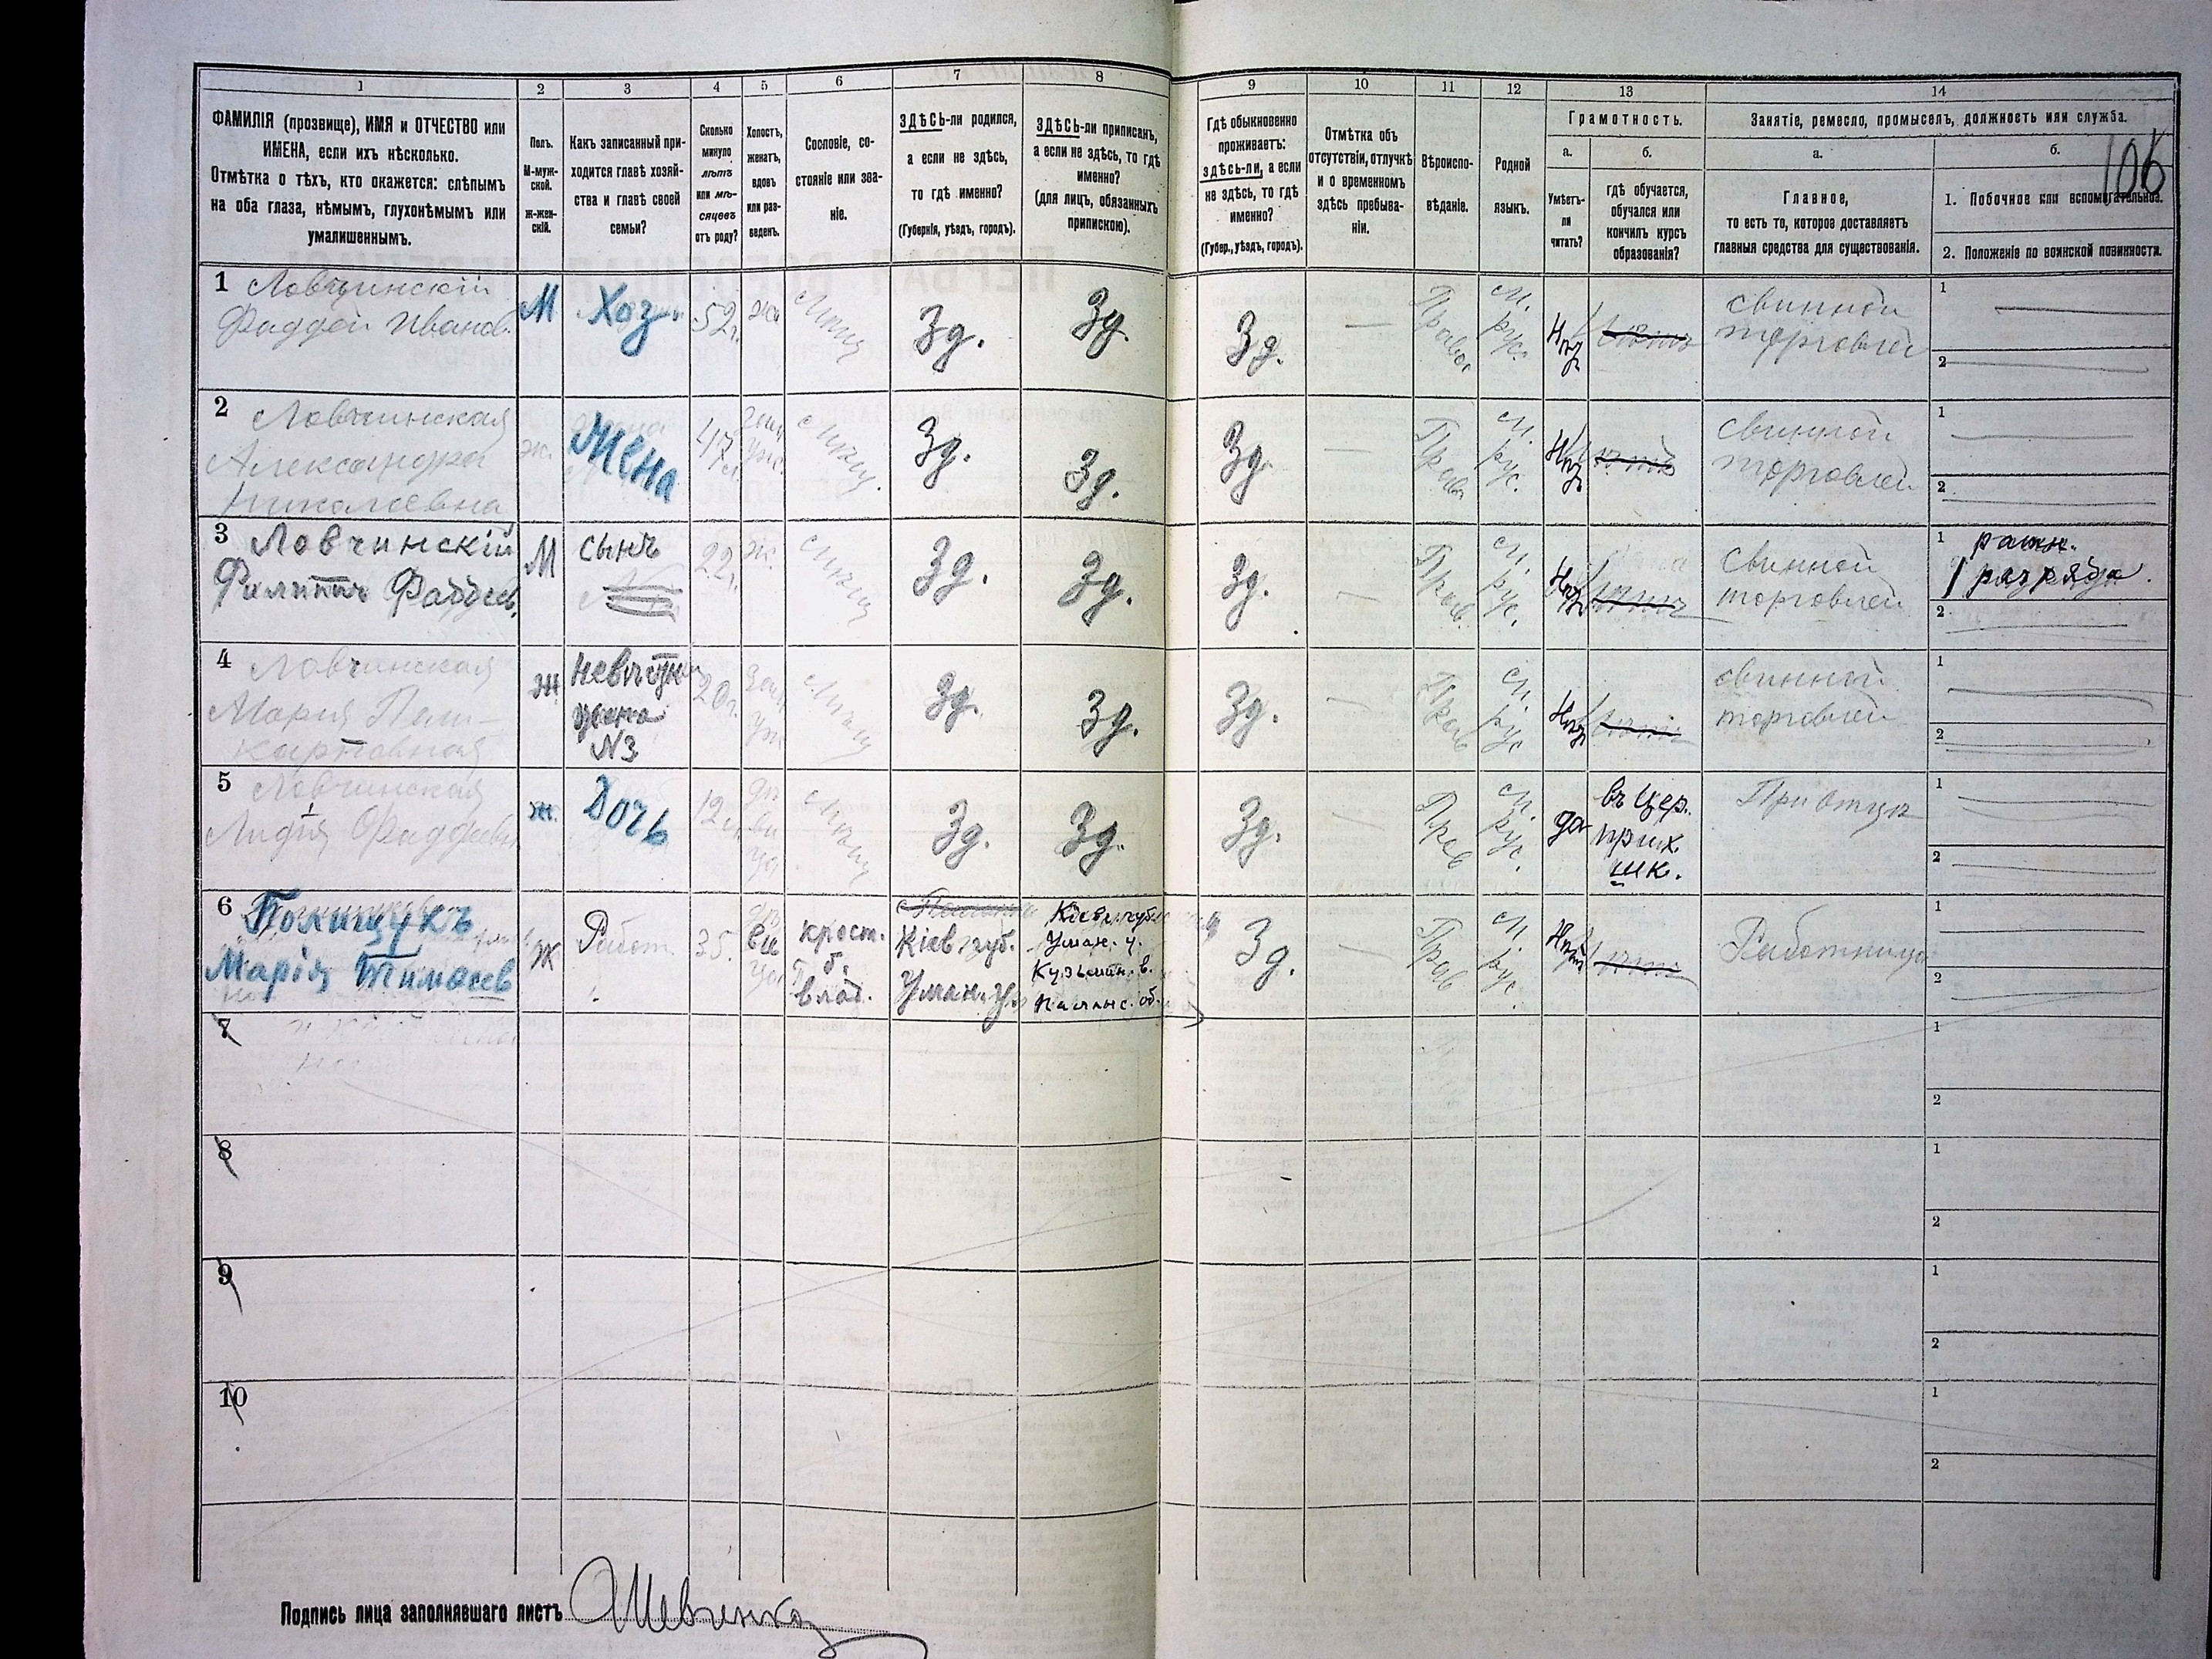 1
2
3
4
5
6
7
8
9
10
11
12
13
14
106
ФАМИЛІЯ (прозвище), ИМЯ и ОТЧЕСТВО или
ИМЕНА, если ихъ нѣсколько.
Отмѣтка о тѣхъ, кто окажется: слѣпымъ
на оба глаза, нѣмымъ, глухонѣмымъ или
умалишеннымъ.
Полъ.
М-муж-
ской.
Ж-жен-
скій.
Какъ записанный при-
ходится главѣ хозяй-
ства и главѣ своей
семьи?
Сколько
минуло
лѣтъ
или мѣ-
сяцевъ
отъ роду?
Холостъ,
женатъ,
вдовъ
или раз-
веденъ.
Сословіе, со-
стояніе или зва-
ніе.
ЗДѢСЬ-ли родился,
а если не здѣсь,
то гдѣ именно?
(Губернія, уѣздъ, городъ).
ЗДѢСЬ-ли приписанъ,
а если не здѣсь, то гдѣ
именно?
(для лицъ, обязанныхъ
припискою).
Гдѣ обыкновенно
проживаетъ:
здѣсь-ли, а если
не здѣсь, то гдѣ
именно?
(Губер., уѣздъ, городъ).
Отмѣтка объ
отсутствіи, отлучкѣ
и о временномъ
здѣсь пребыва-
ніи.
Вѣроиспо-
вѣданіе.
Родной
языкъ.
Грамотность.
а.
Умѣетъ-
ли
читать?
б.
гдѣ обучается,
обучался или
кончилъ курсъ
образованія?
Занятіе, ремесло, промыселъ, должность или служба.
а.
Главное,
то есть то, которое доставляетъ
главныя средства для существованія.
б.
1. Побочное или вспомогательное.
2. Положеніе по воинской повинности.
1 Ловчинскій
Фаддей Иванов.
М
Хоз.
52 г.
жн
Зд.
Зд.
Зд.
—
Правос
М. рус.
свинной
торговлей
1
2
2 Ловчинская
Александра
Николаевна
ж.
Жена
47
Зам уж.
Зд.
Зд.
Зд.
—
Прав
М. рус.
свинной
торговлей
1
2
3 Ловчинскій
Филиппъ Фаддеев.
М
сынъ
22 г.
ж.
Зд.
Зд.
Зд.
—
Прав.
М. рус.
свинной
торговлей
1 ратн.
1 разряда.
2
4 Ловчинская
Мария
Ж
невѣстка
жена
N3
20 г.
Зам уж
Зд.
Зд.
Зд.
—
Прав
М. рус
свинной
торговлей
1
2
5 Ловчинская
Лидія Фаддеевн
ж.
Дочь
12
дѣ ви ца
Зд.
Зд.
Зд.
—
Прав
М. рус.
да
въ цер.
прих.
шк.
При отцѣ
1
2
6 Полищукъ
Марія Тимоѳеев
Ж
Работ.
35.
дѣ ви ца
крест.
б.
влад.
Кіев. губ.
Уман. у.
Кіев. губ.
Уман. у.
Кузьмин. в.
Паланс. об.
Зд.
—
Прав
М. рус.
Работница
1
2
7
1
2
8
1
2
9
1
2
10
1
2
Подпись лица заполнявшаго листъ АШевченко